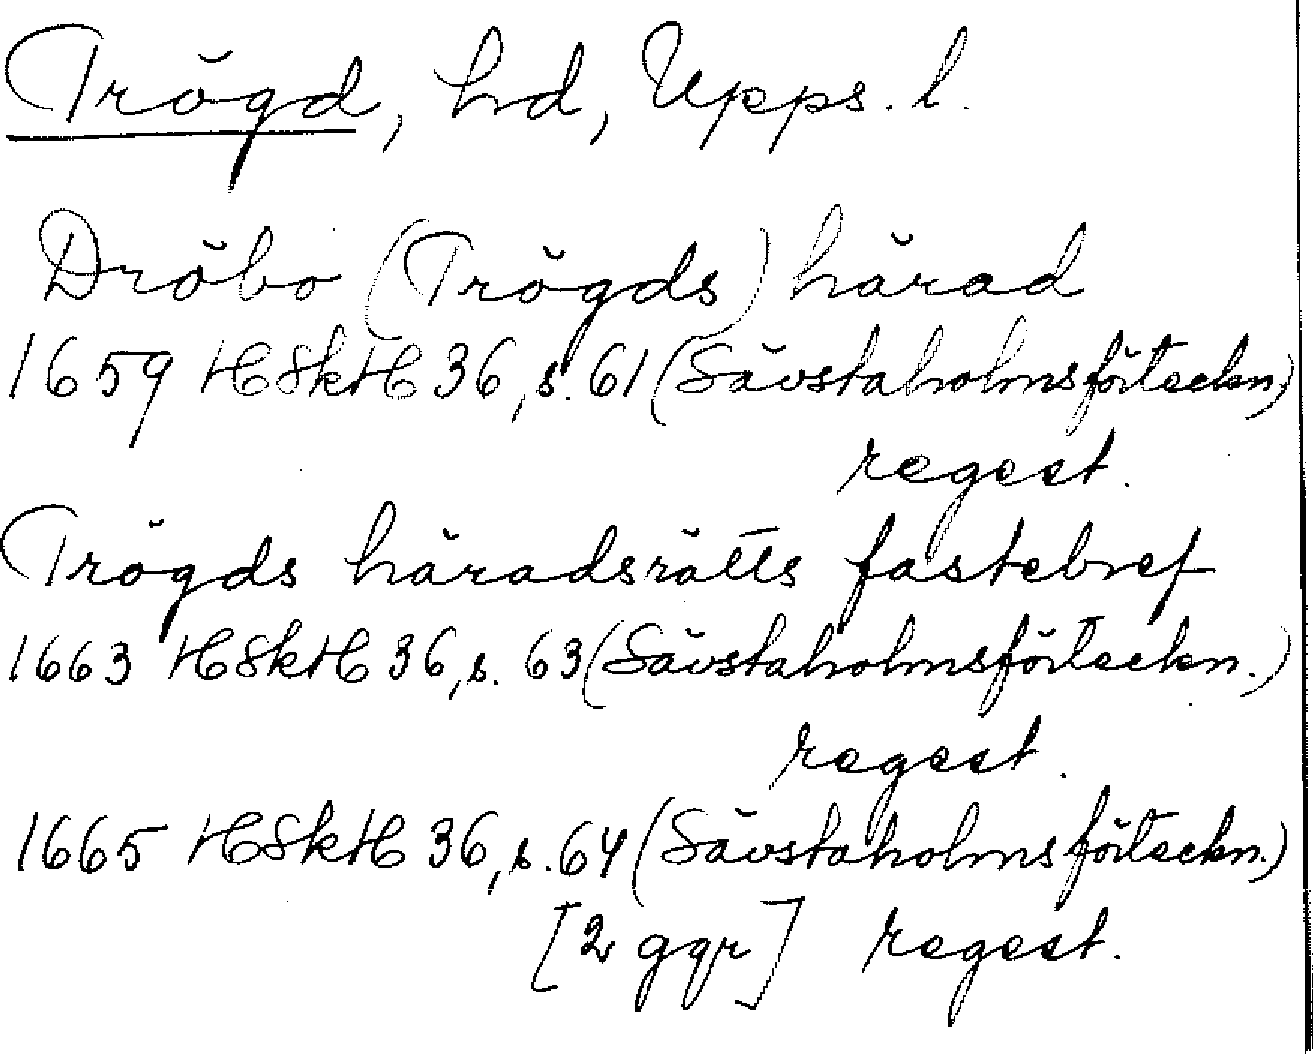 Trögd, hd, Upps. l.
Dröbo (Trögds) härad
1659 HSkH 36, s. 61 (Sävstaholmsförteckn)
regest.
Trögds häradsrätts fastebref
1663 HSkH 36, s. 63 (Sävstaholmsförteckn.)
regest.
1665 HSkH 36, s. 64 (Sävstaholmsförteckn.)
[2 ggr] regest.